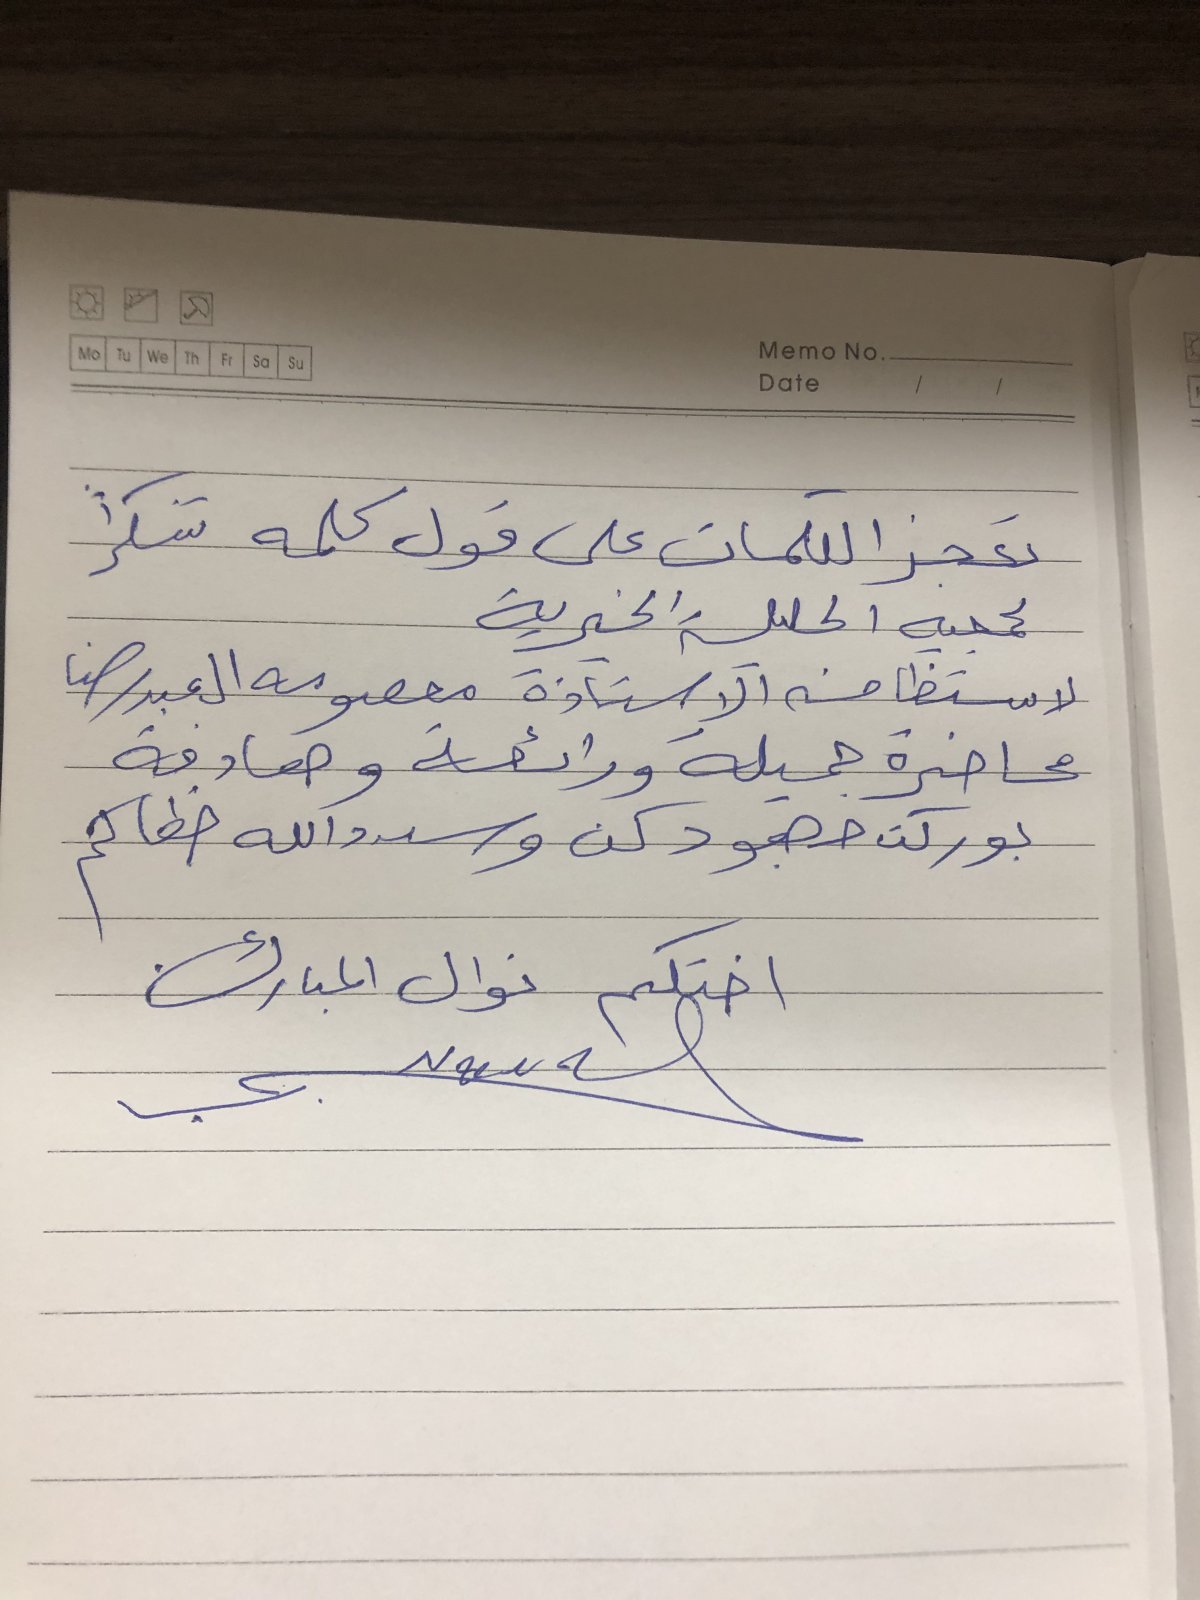 Mo Tu We Th Fr Sa Su
Memo No.
Date / /
تعجز الكلمات على قول كلمه شكراً
لجمعيه الحليلة الخيرية
لاستظافة الاستاذة معصومه العبدرضا
محاضرة جميلة ورائعة وصادقة
بوركت جهودكن وسدد الله خطاكم
اختكم نوال المبارك
Nawal